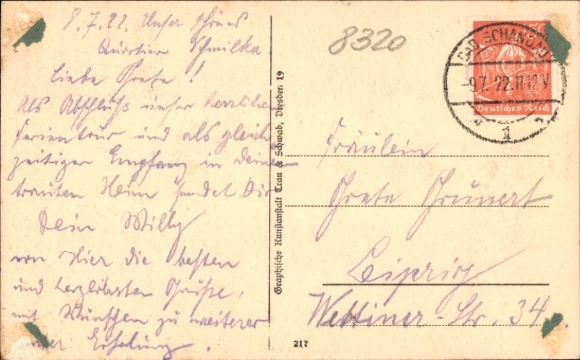 8.7.22. Unser schönes
Quartier Schmilka.
Liebe Grete!
Als Abschluß unser herrliche
Ferientour und als gleich
zeitiger Empfang in deinem
trauten Heim sendet Dir
Dein Willy
von Hier die besten
und herzlichsten Grüsse,
mit Wünschen zu weiterer
Erholung.
8320
Graphische Kunstanstalt Trau & Schwab, Dresden 19
217
BAD SCHANDAU
-9.7.22.11-12.V
1
Deutsches Reich
Fräulein
Grete Grünert
Leipzig
Wettiner-Str. 34.